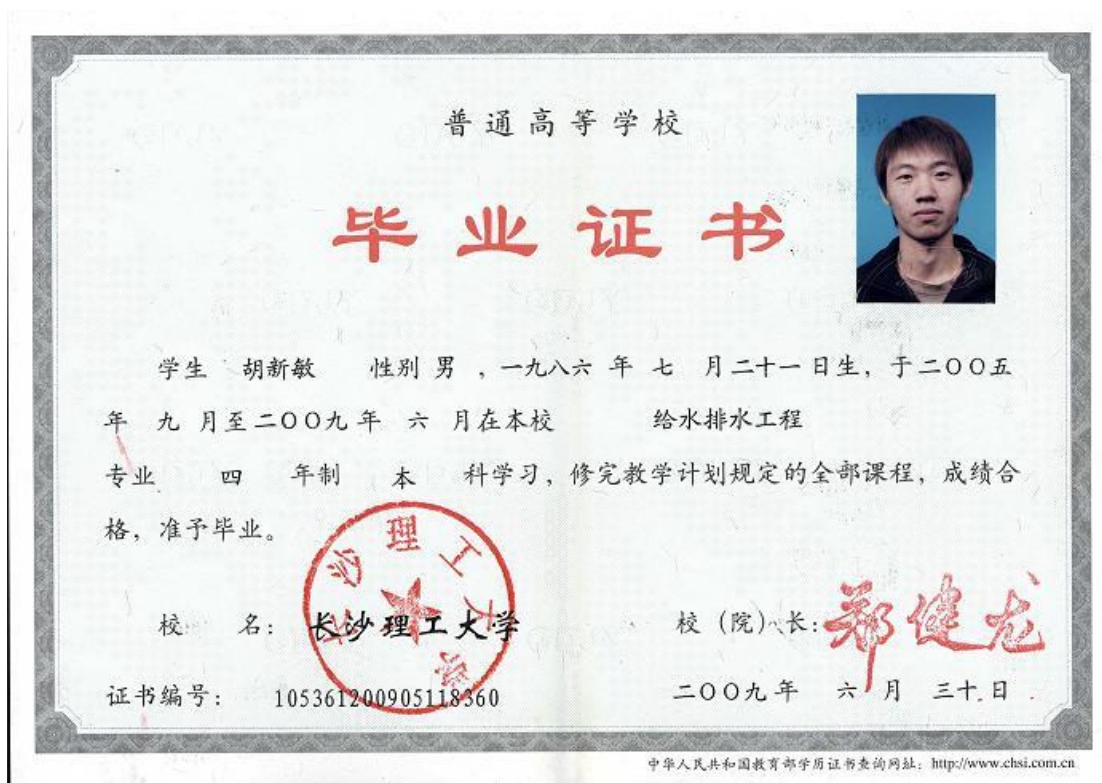 普通高等学校
毕业证书
学生 胡新敏 性别 男 ，一九八六 年 七 月二十一日生，于二〇〇五
年 九 月至二〇〇九年 六 月在本校 给水排水工程
专业 四 年制 本 科学习，修完教学计划规定的全部课程，成绩合
格，准予毕业。
校 名：长沙理工大学
校（院）长：郑健龙
长沙理工大学
证书编号： 105361200905118360
二〇〇九年 六 月 三十日
中华人民共和国教育部学历证书查询网址：http://www.chsi.com.cn